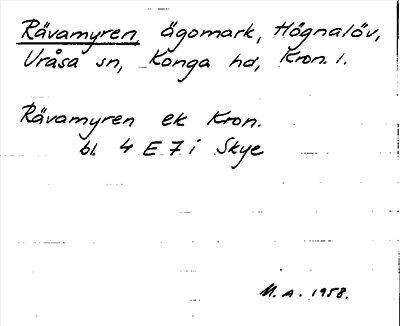 Rävamyren, ägomark, Högnalöv,
Uråsa sn, Konga hd, Kron. l.
Rävamyren ek Kron.
bl. 4 E 7 i Skye
M. A. 1958.